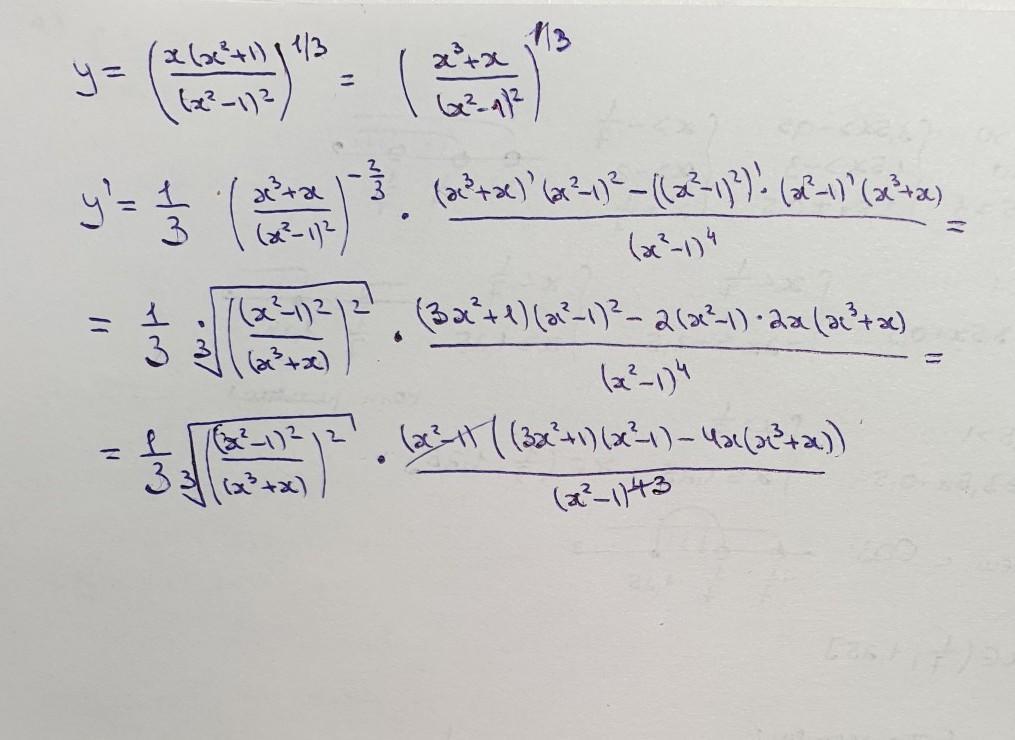 y = (x(x²+1)/(x²-1)²)^1/3 = (x³+x/(x²-1)²)^1/3
y' = 1/3 · (x³+x/(x²-1)²)^-2/3 · (x³+x)'(x²-1)² - ((x²-1)²)'·(x²-1)'(x³+x)/(x²-1)⁴ =
= 1/3 · ³√((x²-1)²/(x³+x))² · (3x²+1)(x²-1)² - 2(x²-1)·2x(x³+x)/(x²-1)⁴ =
= 1/3 ³√((x²-1)²/(x³+x))² · (x²-1)((3x²+1)(x²-1) - 4x(x³+x))/(x²-1)⁴3